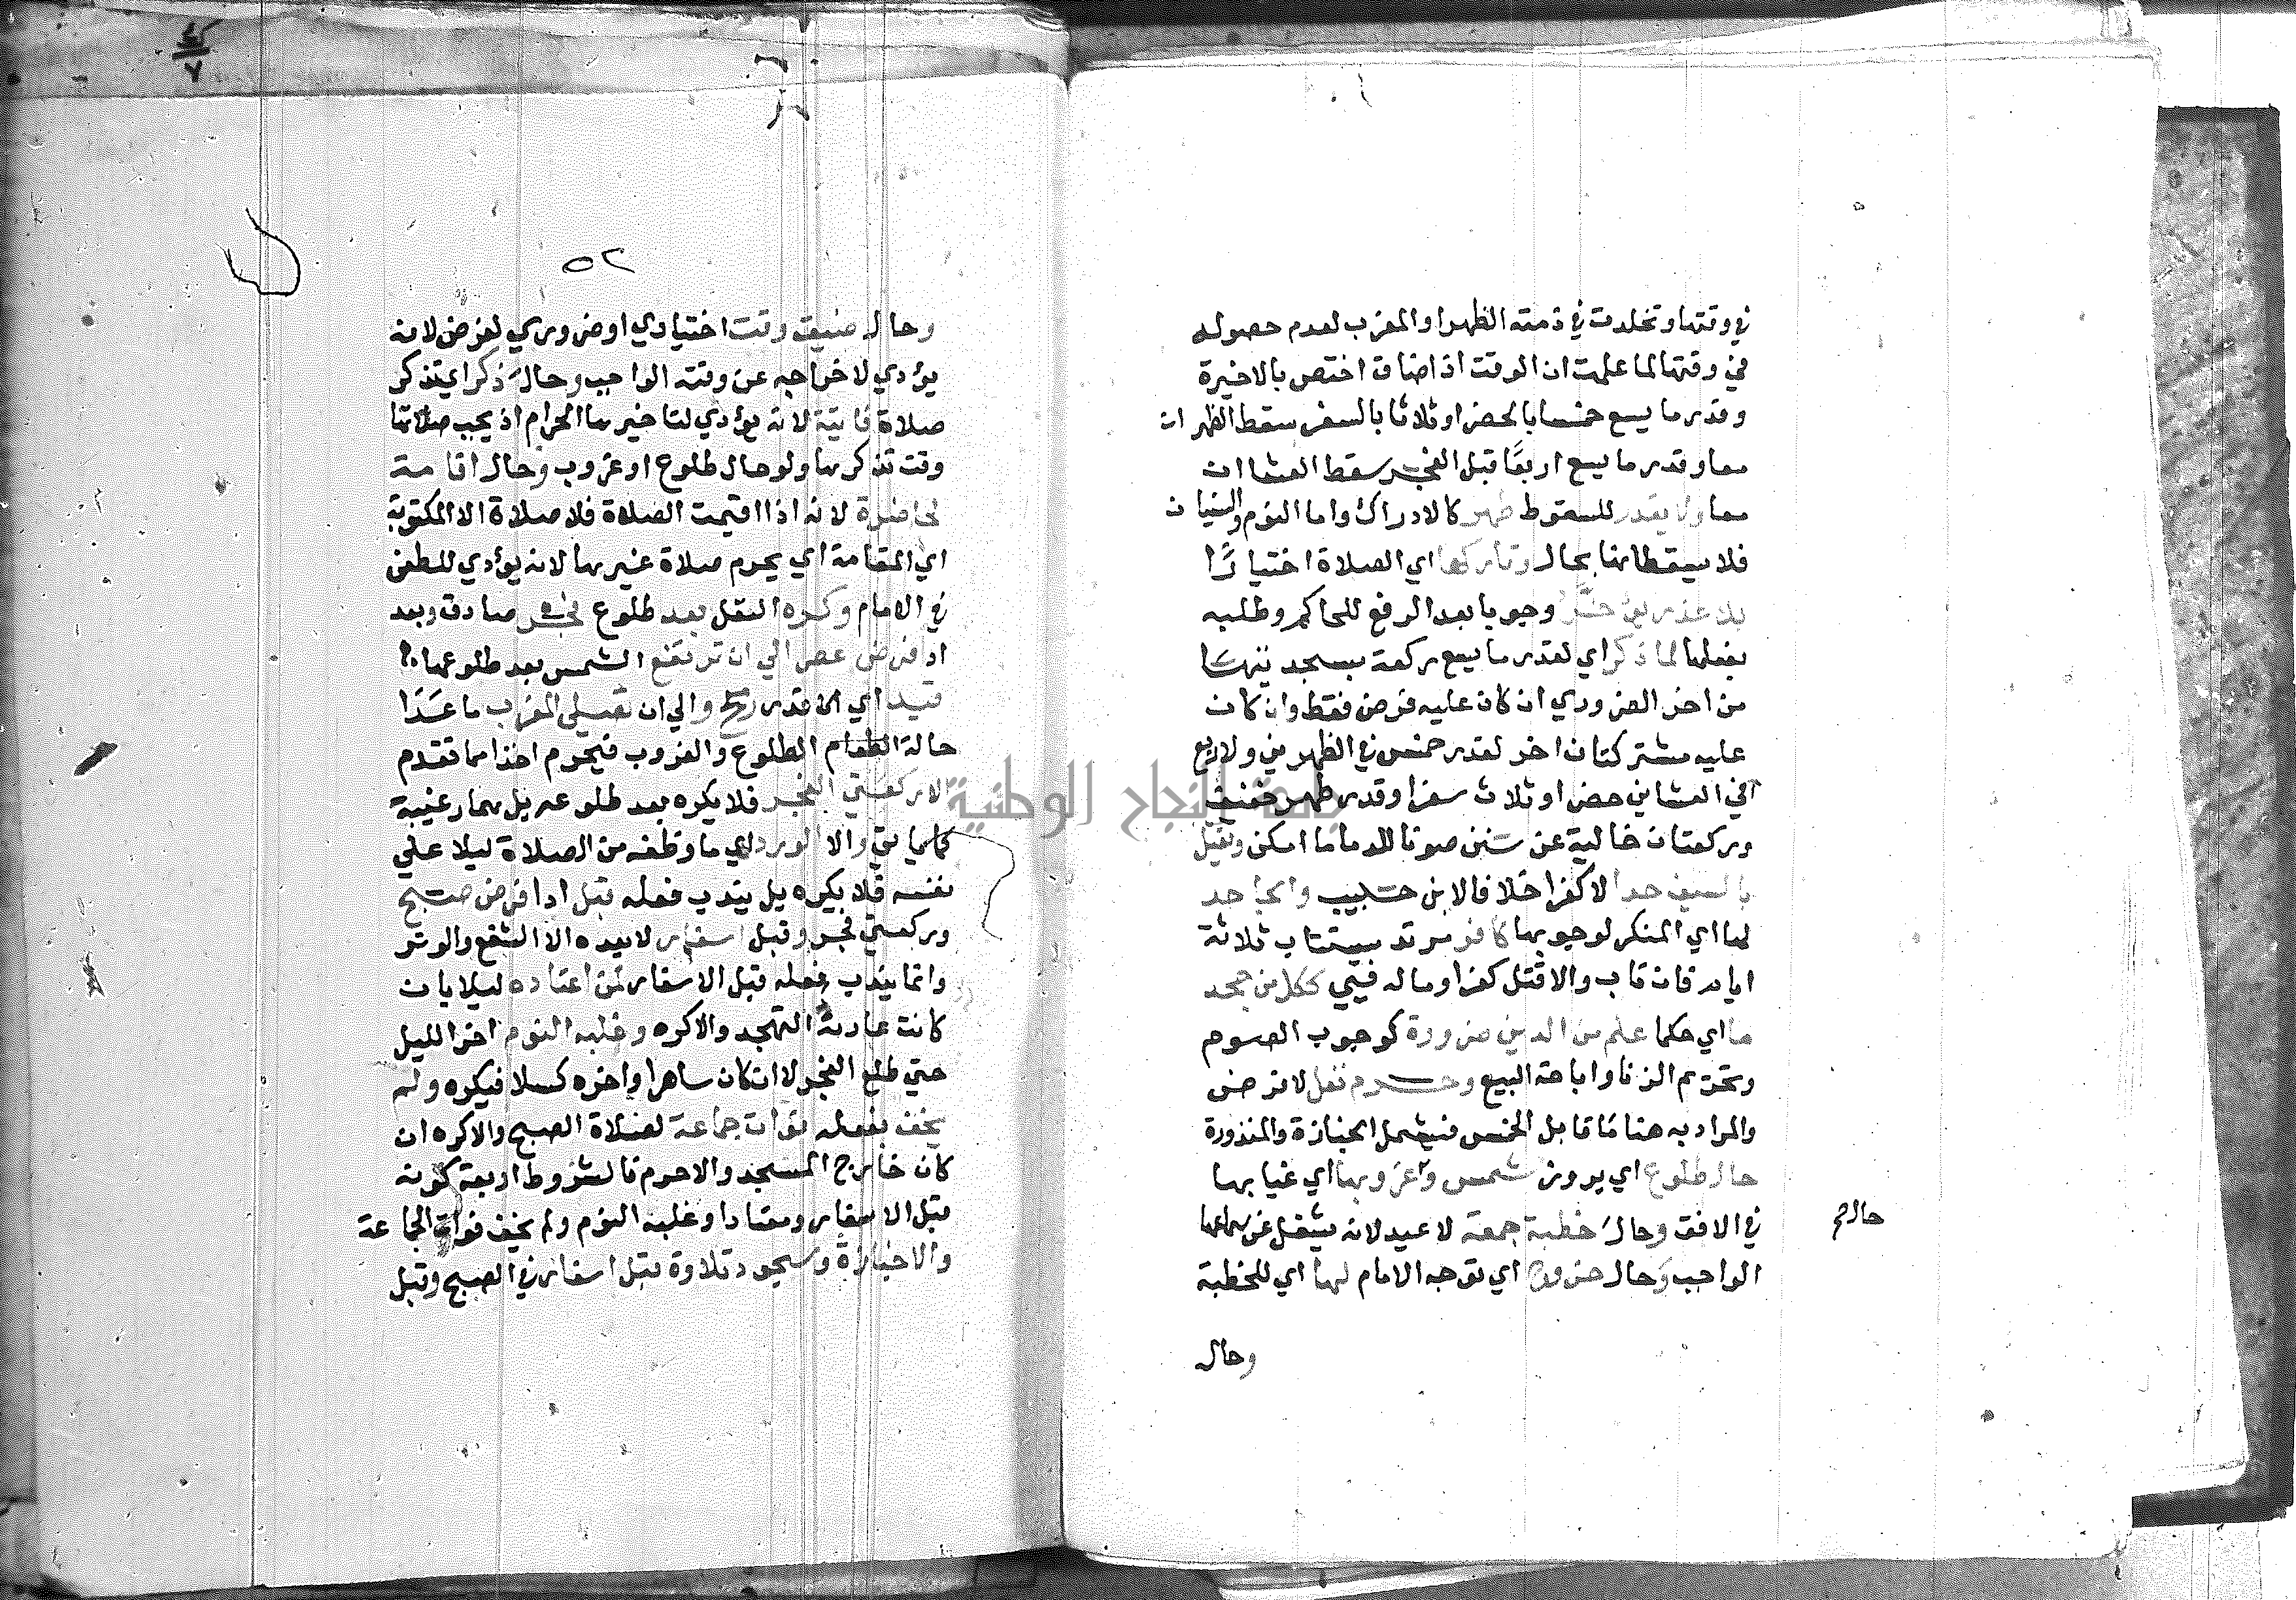 في وقتها وتخلدت في ذمته الظهر او المغرب لعدم حصوله
في وقتها لما علمت ان الوقت اذا ضاق اختص بالاخيرة
وقدر ما يسع خمسا بالحضر او ثلاثا بالسفر سقط الظهران
معا وقدر ما يسع اربعا قبل الفجر سقط العشاان
معا ولا يقدر للسقوط طهر كالادراك واما النوم والنسيان
فلا يسقطانها بحال وتاركها اي الصلاة اختيارا
بلا عذر يؤخر وجوبا بعد الرفع للحاكم وطلبه
بفعلها لما ذكر اي لقدر ما يسع ركعة بسجدتيها
من اخر الضروري ان كان عليه فرض فقط وان كان
عليه مشتركتان اخر لقدر خمس في الظهرين ولاربع
في العشاين حضرا وثلاث سفرا وقدر طهر خفيف
وركعتان خالية عن سنن صونا للدما ما امكن وقتل
بالسيف حدا لا كفرا خلافا لابن حبيب والجاحد
لها اي المنكر لوجوبها كافر مرتد يستتاب ثلاثة
ايام فان تاب والا قتل كفرا وماله فيي ككل من جحد
ما اي حكما علم من الدين ضرورة كوجوب الصوم
وتحريم الزنا واباحة البيع وحرم نفل لا فرض
والمراد به هنا ما قابل الخمس فيشمل الجنازة والمنذورة
حال طلوع اي بروز شمس وغروبها اي غيابها
في الافق وحال خطبة جمعة لا عيد لانه يشغل عن سماعها
حال صح
الواجب وحال خروج اي توجه الامام لها اي للخطبة
وحال
٥٢
وحال ضيق وقت اختياري او ضروري لفرض لانه
يؤدي لاخراجه عن وقته الواجب وحال ذكر اي تذكر
صلاة فايتة لانه يؤدي لتاخيرها الحرام اذ يجب صلاتها
وقت تذكرها ولو حال طلوع او غروب وحال اقامة
لحاضرة لانه اذا اقيمت الصلاة فلا صلاة الا المكتوبة
اي المقامة اي يحرم صلاة غيرها لانه يؤدي للطعن
في الامام وكره النفل بعد طلوع فجر صادق وبعد
ادا فرض عصر الي ان ترتفع الشمس بعد طلوعها
قيد اي قدر رمح والي ان تصلي المغرب ما عدا
حالة الطلوع والغروب فيحرم اخذا مما تقدم
الا ركعتي الفجر فلا يكره بعد طلوعه بل هما رغيبة
كما ياتي والا الورد اي ما وظفه من الصلاة ليلا علي
نفسه فلا يكره بل يندب فعله قبل ادا فرض صبح
وركعتي فجر وقبل اسفار لا بعده الا الشفع والوتر
وانما يندب فعله قبل الاسفار لمن اعتاده ليلا بان
كانت عادته التهجد والا كره وغلبه النوم اخر الليل
حتي طلع الفجر لا ان كان ساهرا واخره كسلا فيكره ولم
يخف بفعله فوات جماعة لصلاة الصبح والا كره ان
كان خارج المسجد والا حرم فالشروط اربعة كونه
قبل الاسفار ومعتادا وغلبه النوم ولم يخف فوات الجماعة
والا جنازة وسجود تلاوة قبل اسفار في الصبح وقبل